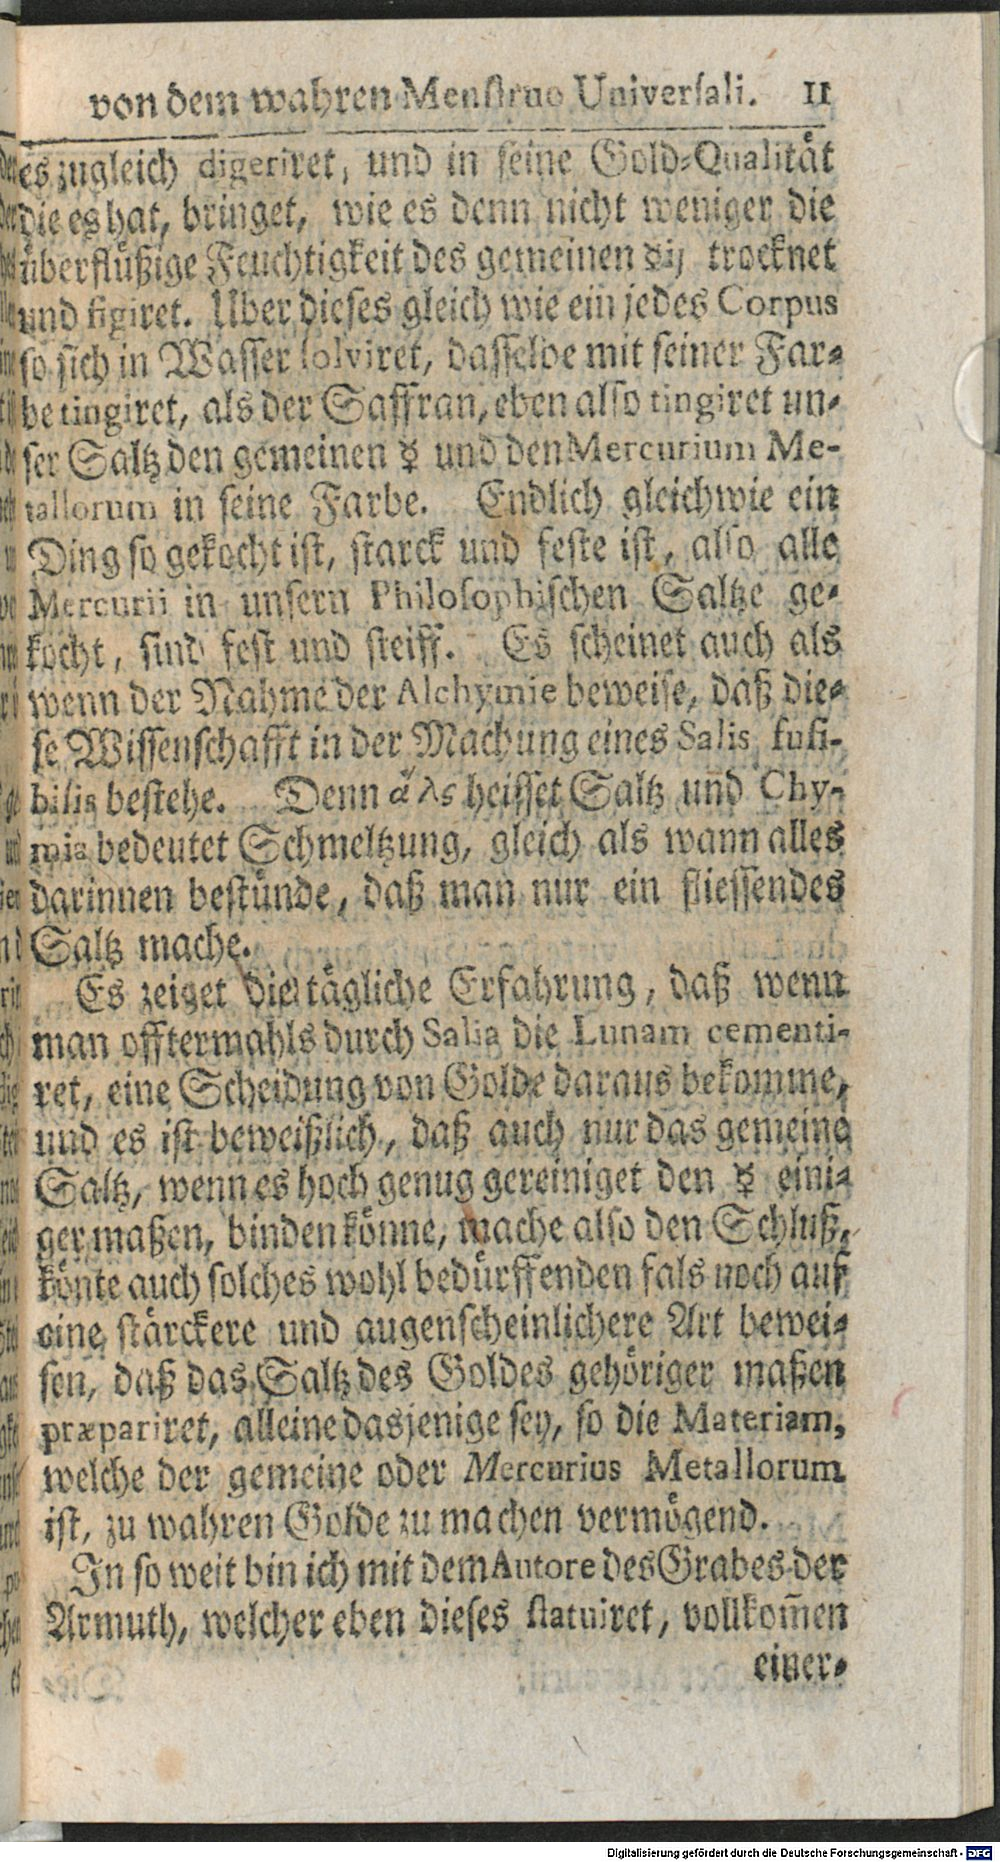 von dem wahren Menstruo Universali. 11
es zugleich digeriret, und in seine Gold-Qualität
die es hat, bringet, wie es denn nicht weniger die
überflüßige Feuchtigkeit des gemeinen ☿ij trocknet
und figiret. Uber dieses gleich wie ein jedes Corpus
so sich in Wasser solviret, dasselbe mit seiner Far-
be tingiret, als der Saffran, eben also tingiret un-
ser Saltz den gemeinen ☿ und den Mercurium Me-
tallorum in seine Farbe. Endlich gleichwie ein
Ding so gekocht ist, starck und feste ist, also alle
Mercurii in unsern Philosophischen Saltze ge-
kocht, sind fest und steiff. Es scheinet auch als
wenn der Nahme der Alchymie beweise, daß die-
se Wissenschafft in der Machung eines Salis fusi-
bilis bestehe. Denn ἅλς heisset Saltz und Chy-
mia bedeutet Schmeltzung, gleich als wann alles
darinnen bestünde, daß man nur ein fliessendes
Saltz mache.
Es zeiget die tägliche Erfahrung, daß wenn
man offtermahls durch Salia die Lunam cementi-
ret, eine Scheidung von Golde daraus bekomme,
und es ist beweißlich, daß auch nur das gemeine
Saltz, wenn es hoch genug gereiniget den ☿ eini-
ger maßen, binden könne, mache also den Schluß,
könte auch solches wohl bedürffenden fals noch auf
eine stärckere und augenscheinlichere Art bewei-
sen, daß das Saltz des Goldes gehöriger maßen
præpariret, alleine dasjenige sey, so die Materiam,
welche der gemeine oder Mercurius Metallorum
ist, zu wahren Golde zu machen vermögend.
In so weit bin ich mit dem Autore des Grabes der
Armuth, welcher eben dieses statuiret, vollkom̃en
einer-
Digitalisierung gefördert durch die Deutsche Forschungsgemeinschaft - DFG